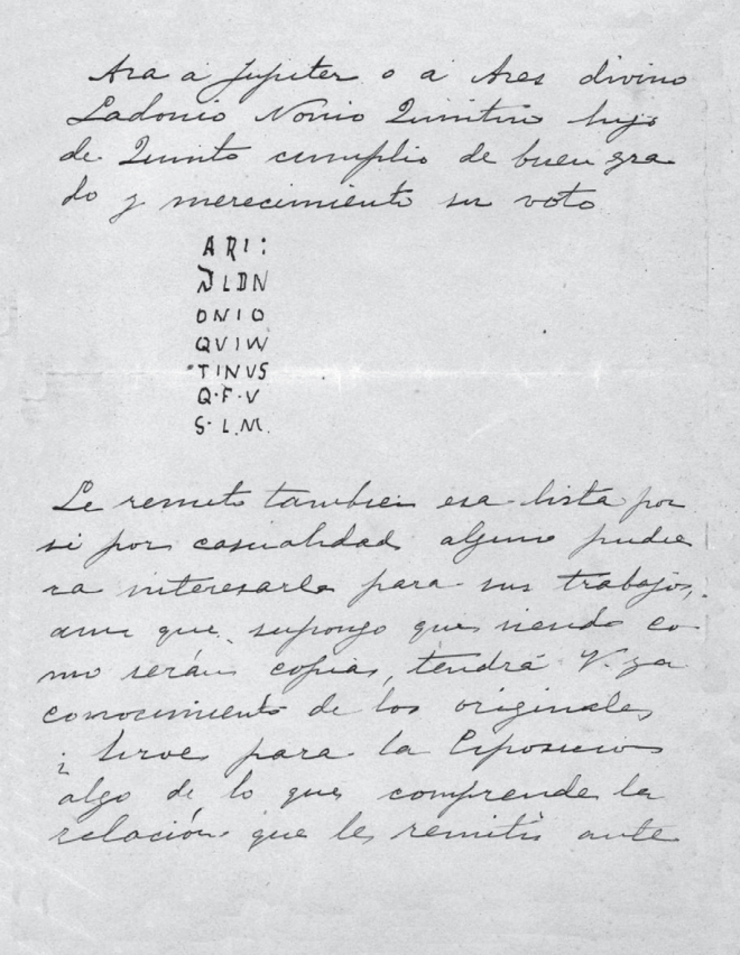 Ara a Jupiter o a Ares divino
Ladonio Nonio Quintino hijo
de Quinto cumplio de buen gra
do y merecimiento su voto
ARI:
NLDN
ONIO
QUIW
TINUS
Q·F·V
S·L.M.
Le remito tambien esa lista por
si por casualidad alguno pudie
ra interesarle para sus trabajos,
aun que supongo que siendo co-
mo serán copias, tendrá V. ya
conocimiento de los originales
¿ Sirve para la Exposicion
algo de lo que comprende la
relación que les remitì ante